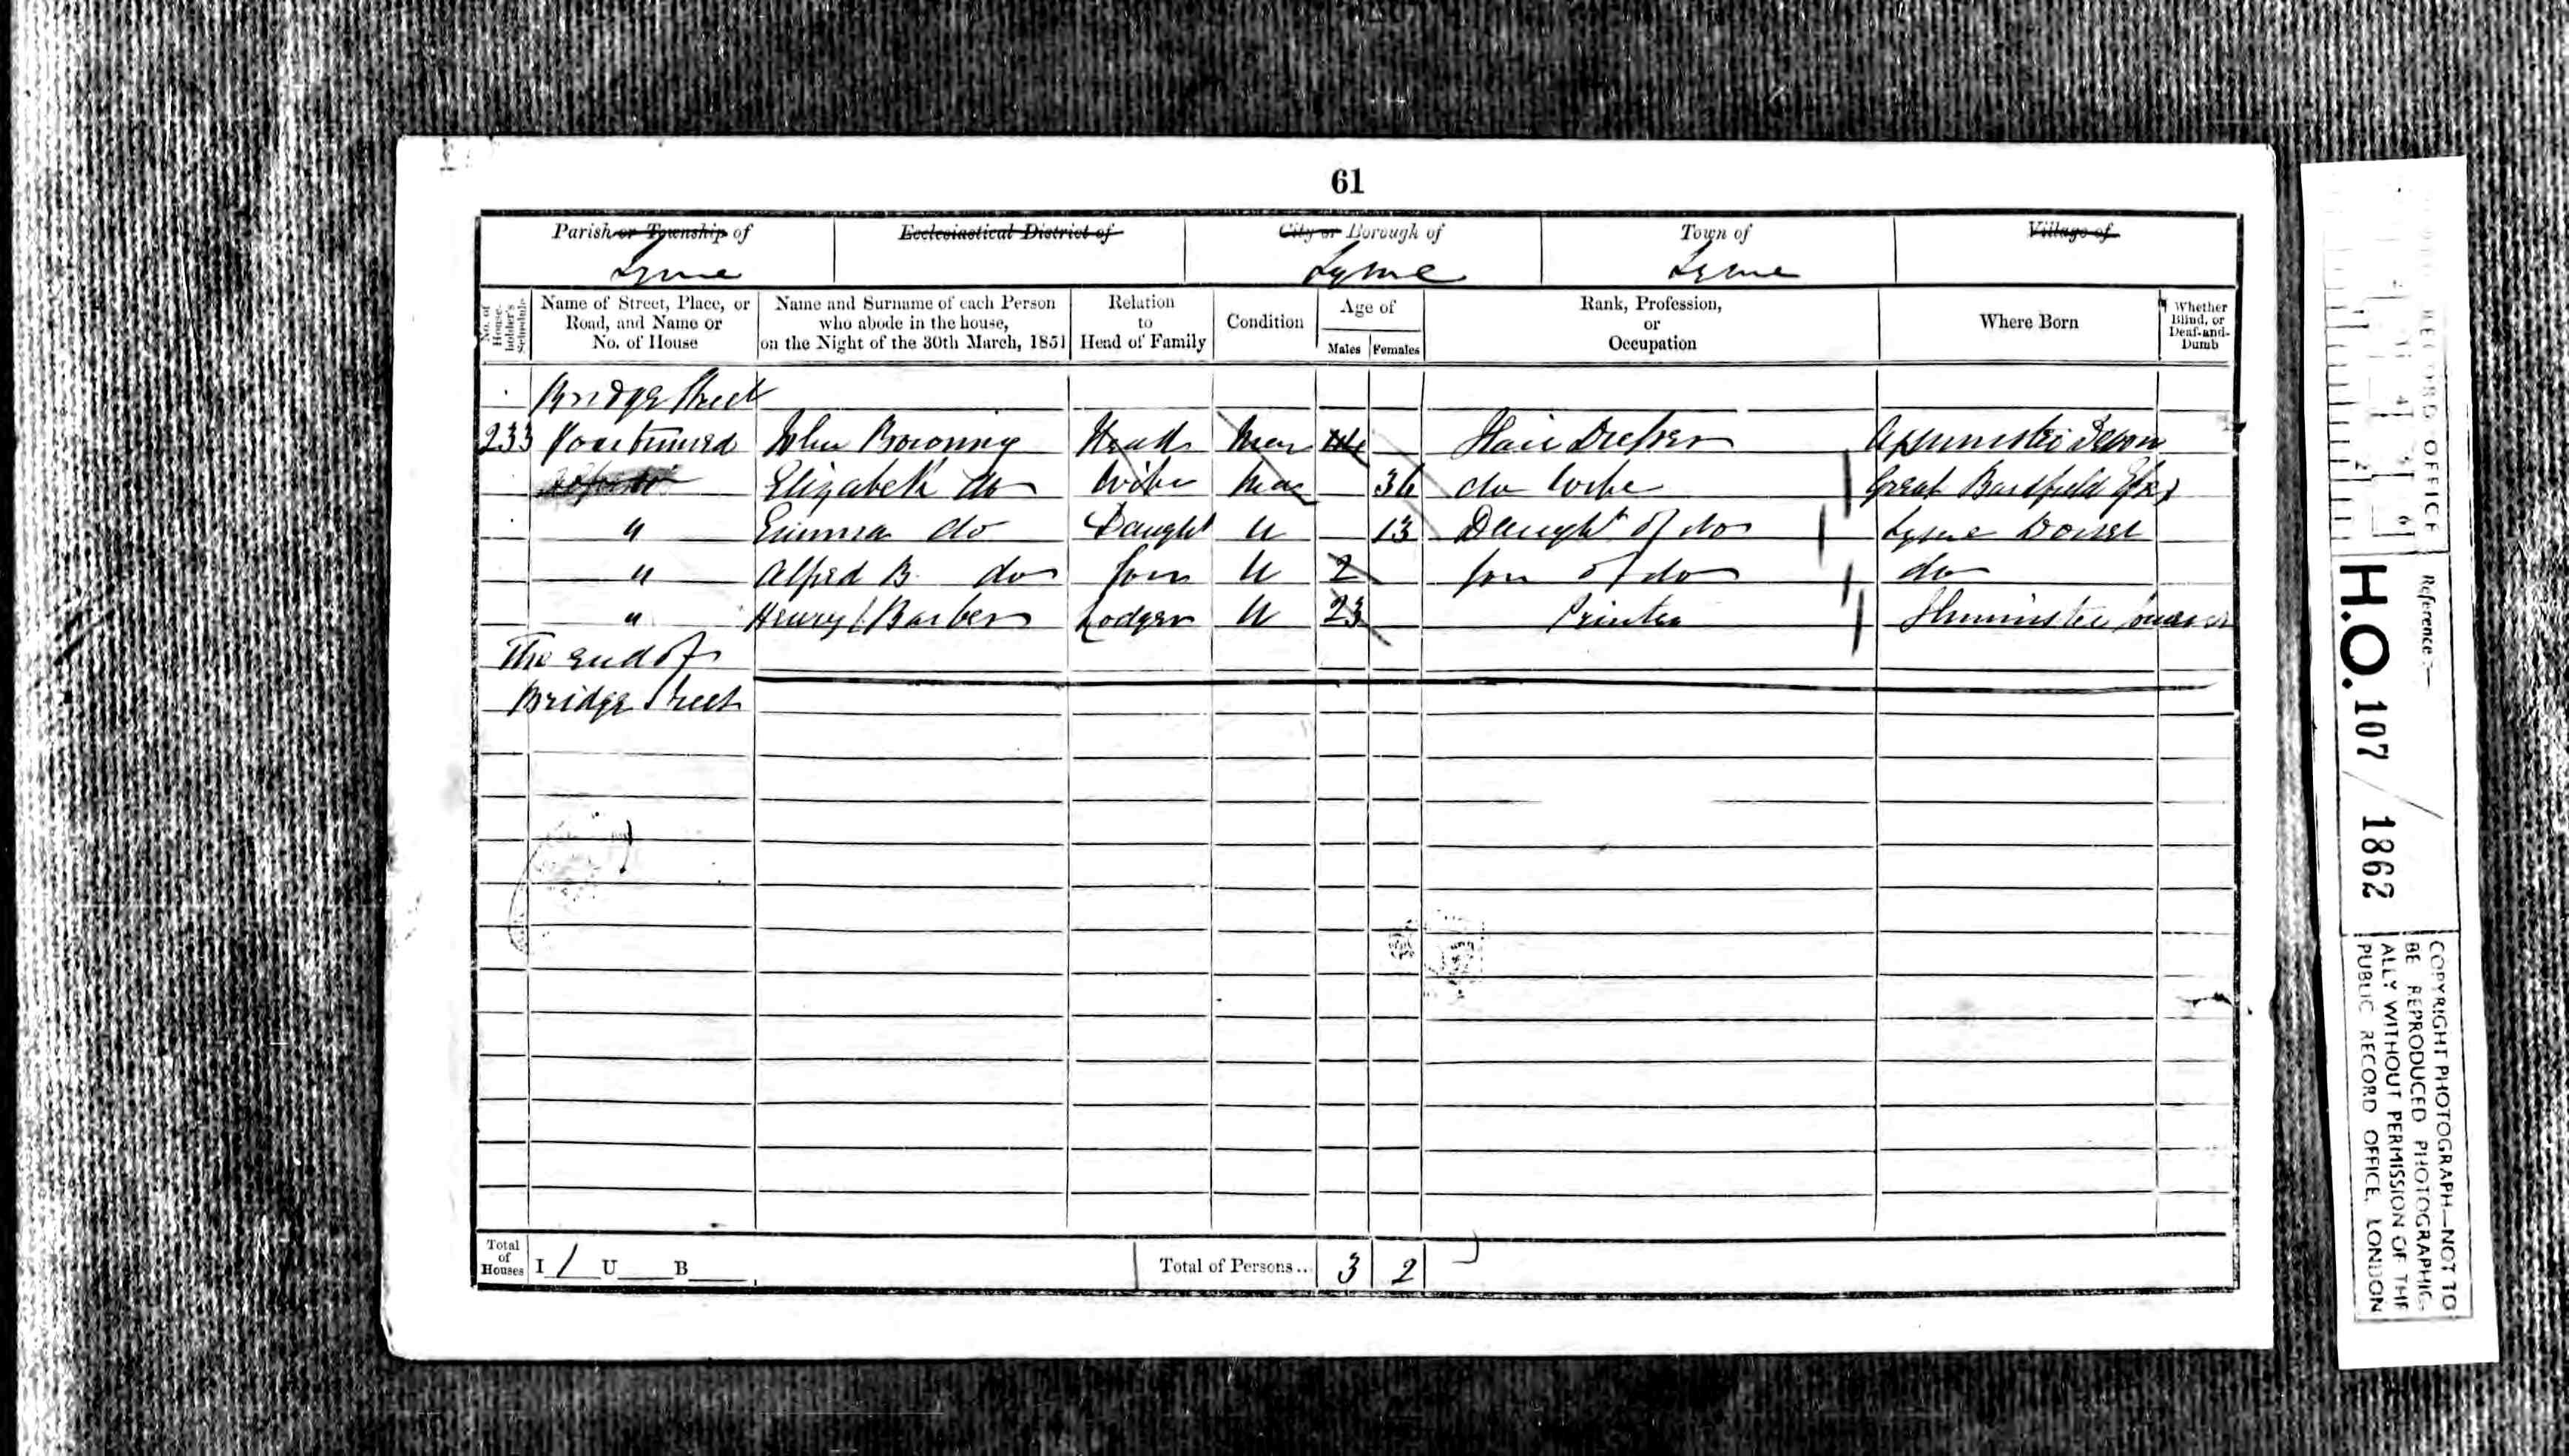 61
Parish or Township of
Ecclesiastical District of
City or Borough of
Town of
Village of
Lyme
Lyme
Lyme
No. of House-holder's Schedule
Name of Street, Place, or Road, and Name or No. of House
Name and Surname of each Person who abode in the house, on the Night of the 30th March, 1851
Relation to Head of Family
Condition
Age of
Males
Females
Rank, Profession, or Occupation
Where Born
Whether Blind, or Deaf-and-Dumb
Bridge Street
233 John Browning Head Mar Hair Dresser Axminster Devon
Elizabeth do Wife Mar 36 do Wife Great Bardfield Essex
" Emma do Daught U 13 Daught of do Lyme Dorset
" Alfred B do Son U 2 Son of do do
" Henry Barber Lodger U 23 Printer Ilminster
The end of
Bridge Street
Total of Houses
I 1 U B
Total of Persons... 3 2
RECORD OFFICE
Reference:—
H.O. 107 / 1862
COPYRIGHT PHOTOGRAPH—NOT TO
BE REPRODUCED PHOTOGRAPHIC-
ALLY WITHOUT PERMISSION OF THE
PUBLIC RECORD OFFICE, LONDON